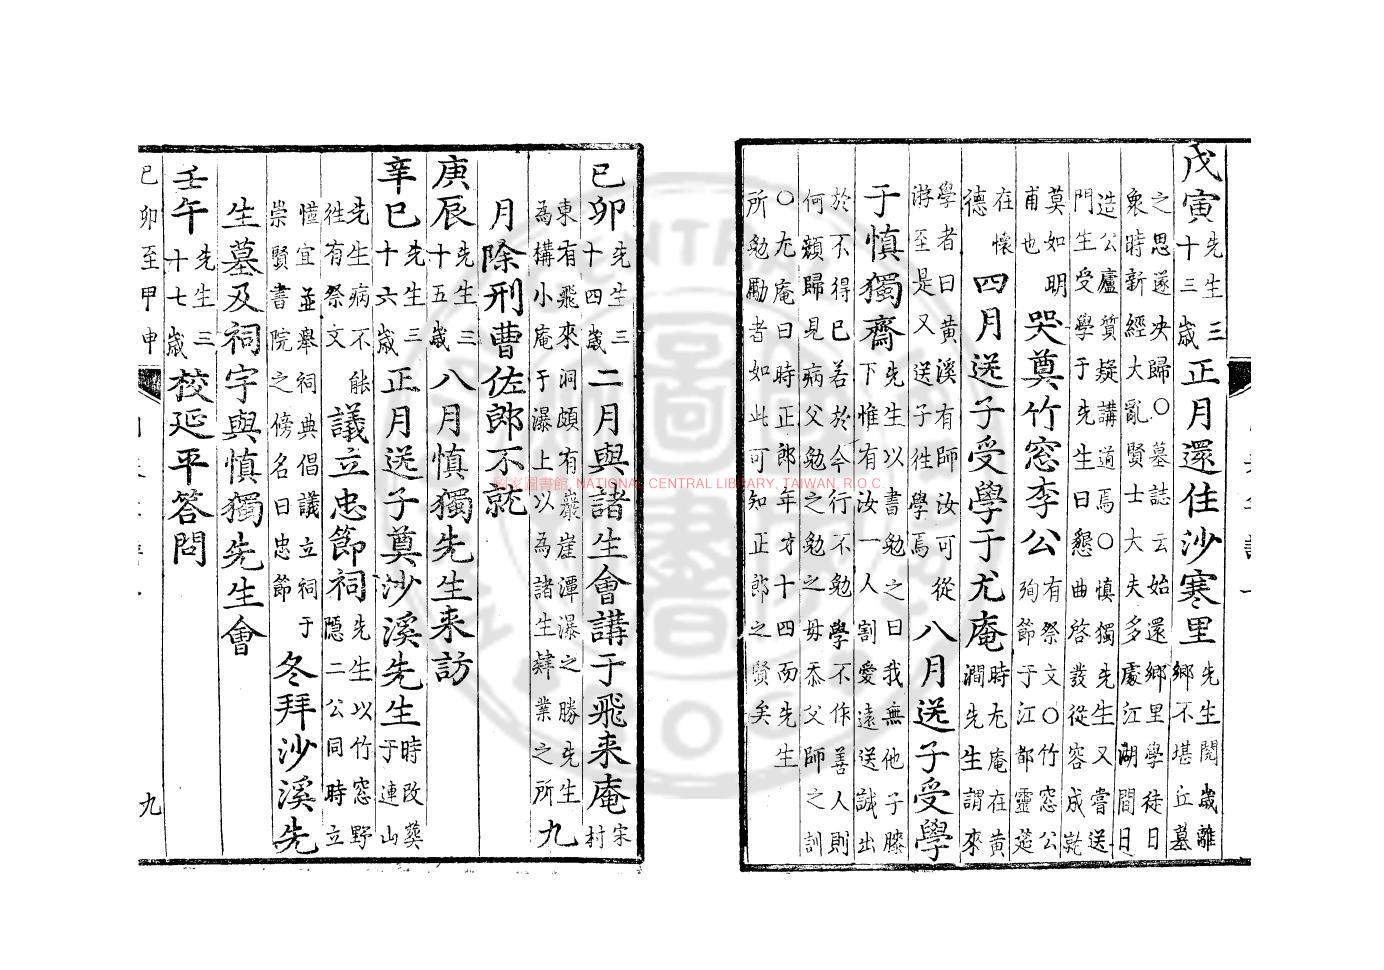 戊寅先生三十三歲正月還住沙寒里先生閱歲離鄉不堪丘墓
之思遂決歸○墓誌云始還鄉里學徒日衆時新經大亂賢士大夫多處江湖間日
造公廬質疑講道焉○慎獨先生又嘗送門生受學于先生曰懇曲啓發從容成就
莫如明甫也 哭奠竹窓李公有祭文○竹窓公殉節于江都靈筵
在懷德 四月送子受學于尤庵時尤庵在黃澗先生謂來
學者曰黃溪有師汝可從游至是又送子徃學焉 八月送子受學
于慎獨齋先生以書勉之曰我無他子膝下惟有汝一人割愛遠送誠出
於不得已若於今行不勉學不作善人則何顏歸見病父勉之勉之毋忝父師之訓
○尤庵曰時正郎年才十四而先生所勉勵者如此可知正郎之賢矣
己卯先生三十四歲二月與諸生會講于飛来庵宋村
東有飛來洞頗有巖崖潭瀑之勝先生為構小庵于瀑上以為諸生肄業之所 九
月除刑曹佐郎不就
庚辰先生三十五歲八月慎獨先生来訪
辛巳先生三十六歲正月送子奠沙溪先生時改葬于連山
先生病不能徃有祭文 議立忠節祠先生以竹窓野隱二公同時立
慬宜並舉祠典倡議立祠于崇賢書院之傍名曰忠節 冬拜沙溪先
生墓及祠宇與慎獨先生會
壬午先生三十七歲校延平答問
己卯至甲申
九